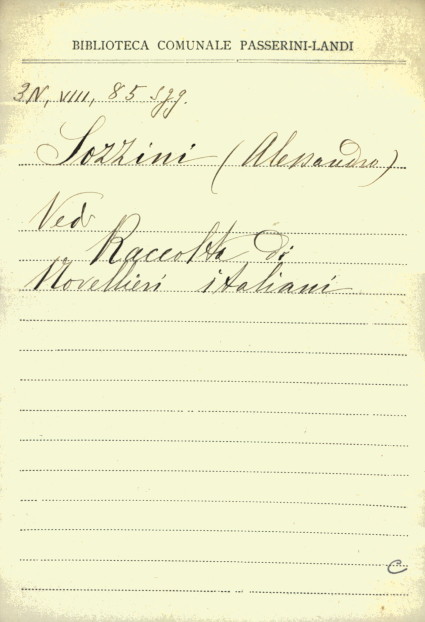 BIBLIOTECA COMUNALE PASSERINI-LANDI
3N, VIII, 85 sgg.
Sozzini (Alessandro)
Ved
Raccolta di
Novellieri italiani
C